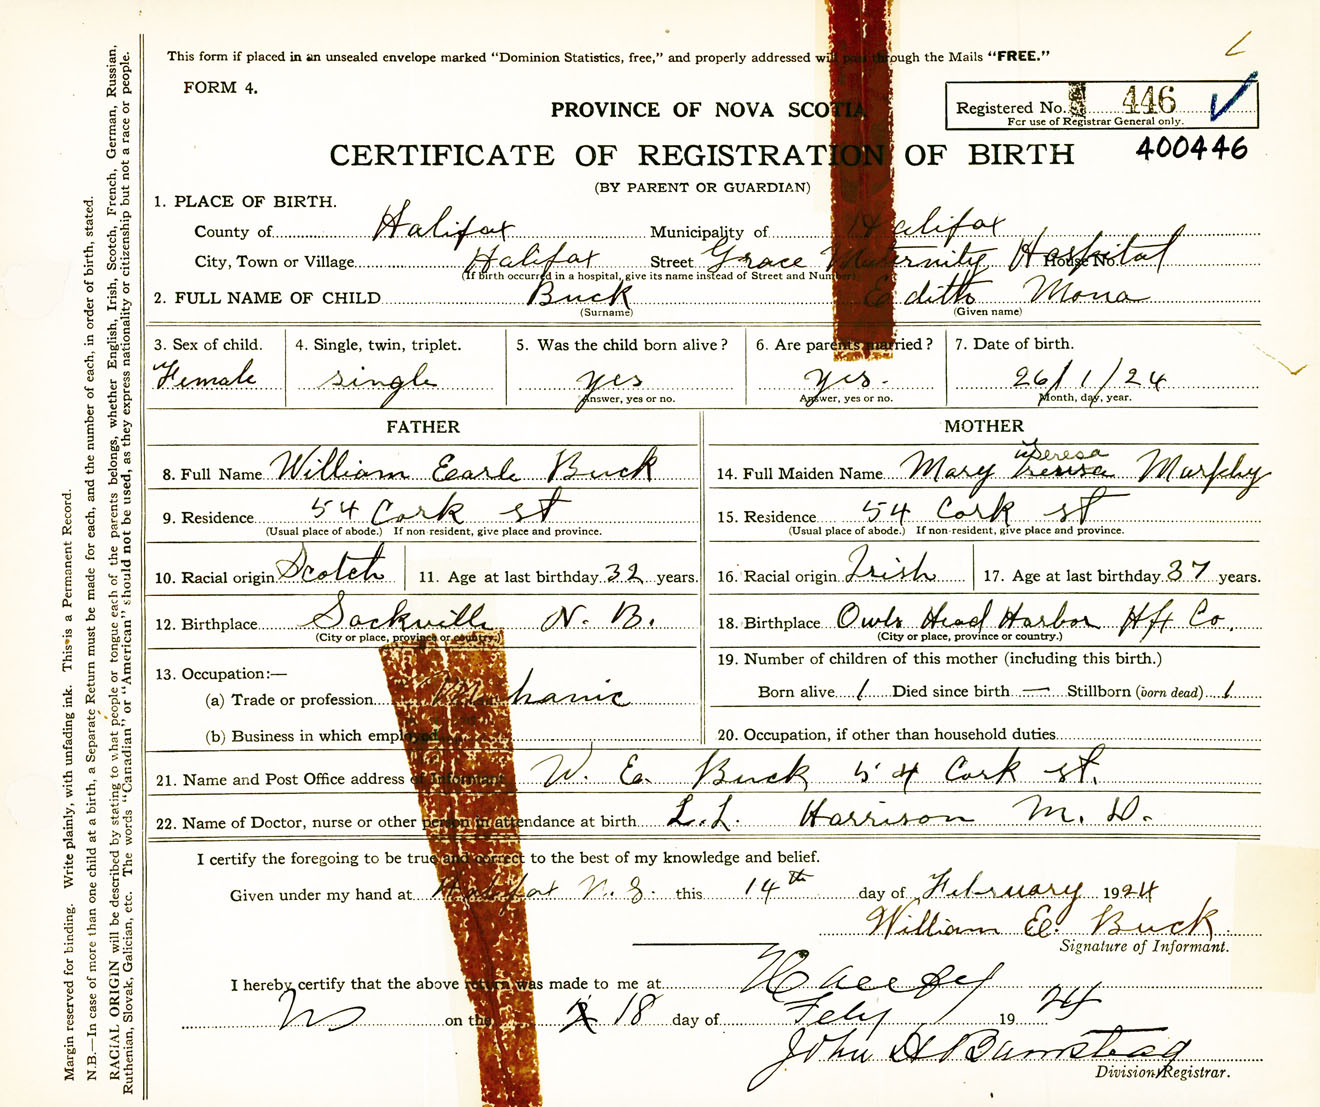 This form if placed in an unsealed envelope marked "Dominion Statistics, free," and properly addressed will pass through the Mails "FREE."
FORM 4.
Registered No. 446
For use of Registrar General only.
PROVINCE OF NOVA SCOTIA
400446
CERTIFICATE OF REGISTRATION OF BIRTH
(BY PARENT OR GUARDIAN)
1. PLACE OF BIRTH.
County of Halifax Municipality of Halifax
City, Town or Village Halifax Street Grace Maternity Hospital House No.
(If birth occurred in a hospital, give its name instead of Street and Number)
2. FULL NAME OF CHILD Buck Edith Mona
(Surname) (Given name)
3. Sex of child. 4. Single, twin, triplet. 5. Was the child born alive? 6. Are parents married? 7. Date of birth.
Female single yes yes. 26/1/24
Answer, yes or no. Answer, yes or no. Month, day, year.
FATHER MOTHER
8. Full Name William Earle Buck 14. Full Maiden Name Mary Theresa Murphy
9. Residence 54 Cork st 15. Residence 54 Cork st
(Usual place of abode.) If non-resident, give place and province. (Usual place of abode.) If non-resident, give place and province.
10. Racial origin Scotch 11. Age at last birthday 32 years. 16. Racial origin Irish 17. Age at last birthday 37 years.
12. Birthplace Sackville N. B. 18. Birthplace Owls Head Harbor Hfx Co.
(City or place, province or country.) (City or place, province or country.)
13. Occupation:— 19. Number of children of this mother (including this birth.)
(a) Trade or profession Mechanic Born alive 1 Died since birth — Stillborn (born dead) 1
(b) Business in which employed 20. Occupation, if other than household duties
21. Name and Post Office address of Informant W. E. Buck 54 Cork st.
22. Name of Doctor, nurse or other person in attendance at birth L.L. Harrison M. D.
I certify the foregoing to be true and correct to the best of my knowledge and belief.
Given under my hand at Halifax N. S. this 14th day of February 1924
William E. Buck
Signature of Informant.
I hereby certify that the above return was made to me at
NS on the 18 day of Feby 1924
John H Barnstead
Division Registrar.
Margin reserved for binding. Write plainly, with unfading ink. This is a Permanent Record.
N.B.—In case of more than one child at a birth, a Separate Return must be made for each, and the number of each, in order of birth, stated.
RACIAL ORIGIN will be described by stating to what people or tongue each of the parents belongs, whether English, Irish, Scotch, French, German, Russian,
Ruthenian, Slovak, Galician, etc. The words "Canadian" or "American" should not be used, as they express nationality or citizenship but not a race or people.